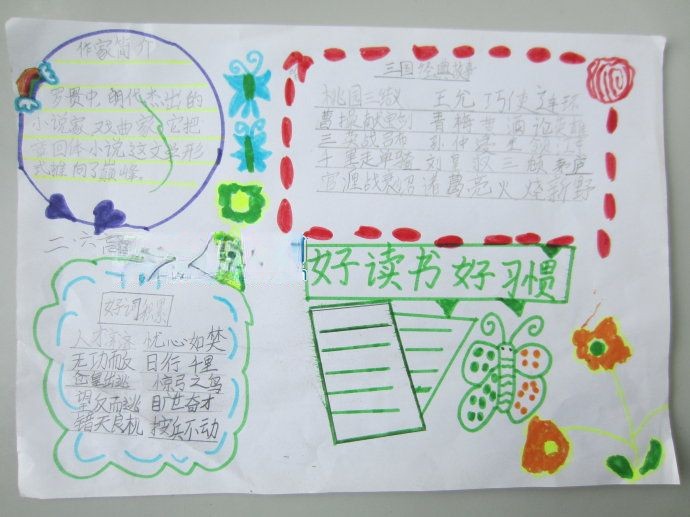 作家简介
罗贯中，明代杰出的
小说家、戏曲家，它把
章回体小说这文学形
式推向了巅峰。
三国经典故事
桃园三结义 王允巧使连环
曹操献刀 青梅煮酒论英雄
三英战吕布 孙仲谋
千里走单骑 刘皇叔三顾茅庐
官渡战 诸葛亮火烧新野
二.六
好读书好习惯
好词积累
人才济济 忧心如焚
无功而返 日行千里
惊弓之鸟
望久而逃
错失良机 按兵不动